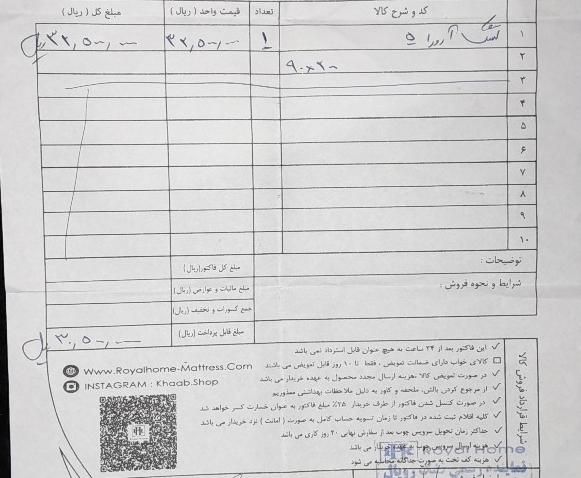 کد و شرح کالا تعداد قیمت واحد ( ریال ) مبلغ کل ( ریال )
۱ تشک آرورا ۵ ۱ ۳۲,۵۰۰,۰۰۰ ۳۲,۵۰۰,۰۰۰ ریال
۲ ۹۰×۲۰۰
۳
۴
۵
۶
۷
۸
۹
۱۰
توضیحات :
مبلغ کل فاکتور(ریال)
شرایط و نحوه فروش :
مبلغ مالیات و عوارض (ریال)
جمع کسورات و تخفیف (ریال)
مبلغ قابل پرداخت (ریال) ۳۰,۵۰۰,۰۰۰ ریال
شرایط قرارداد فروش کالا
این فاکتور بعد از ۲۴ ساعت به هیچ عنوان قابل استرداد نمی باشد
کالای خواب دارای ضمانت تعویض ، فقط تا ۱۰ روز قابل تعویض می باشند
در صورت تعویض کالا هزینه ارسال مجدد محصول به عهده خریدار می باشد
از مرجوع کردن بالش، ملحفه و کاور به دلیل ملاحظات بهداشتی معذوریم
در صورت کنسل شدن فاکتور از طرف خریدار ۲۵٪ مبلغ فاکتور به عنوان خسارت کسر خواهد شد
کلیه اقلام ثبت شده در فاکتور تا زمان تسویه حساب کامل به صورت ( امانت ) نزد خریدار می باشد
حداکثر زمان تحویل سرویس چوب بعد از سفارش نهایی ۲۰ روز کاری می باشد
هزینه ارسال سرویس چوب به عهده خریدار می باشد
هزینه کف تخت به صورت جداگانه محاسبه می شود
www.Royalhome-Mattress.Com
INSTAGRAM : Khaab.Shop
Royal Home